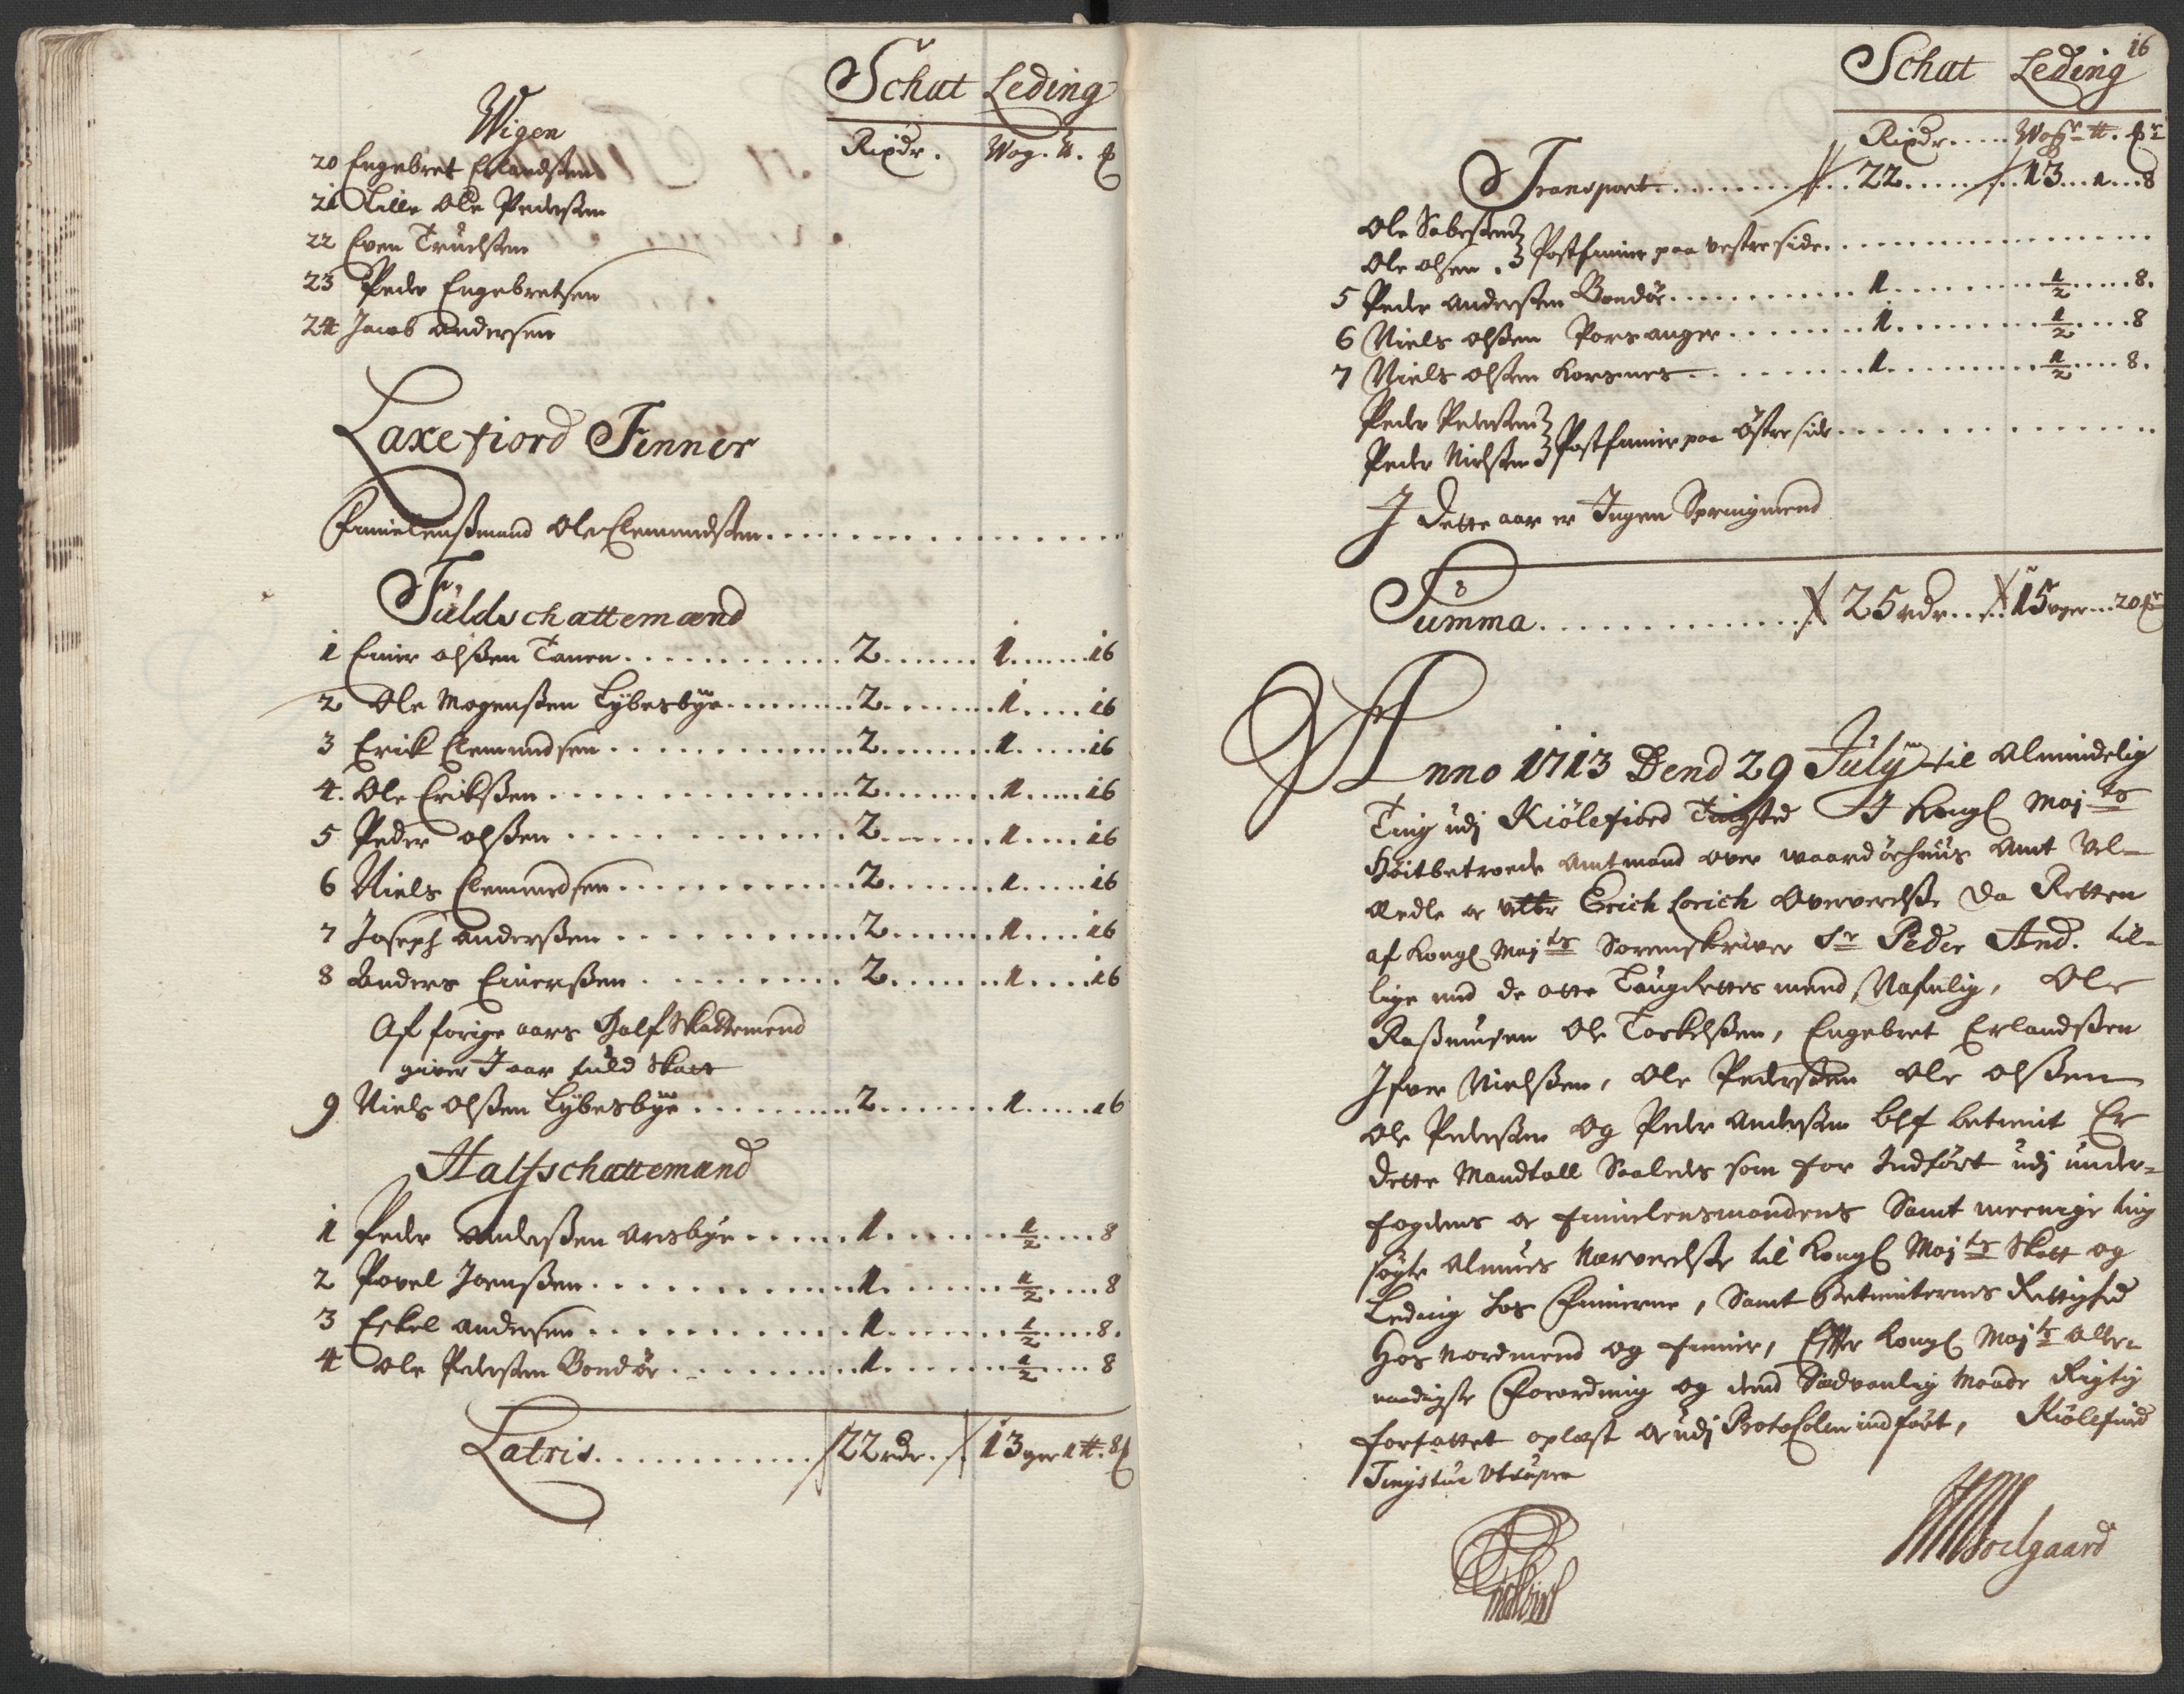 Schat Leding
Rixdr. Wog. ℔. ₰
Wigen
20 Engebret Erlandsen
21 Lille Ole Pedersen
22 Even Truelsen
23 Peder Engebretsen
24 Jacob Andersen
Laxefiord Finner
Finnelensmand Ole Clemmedsen
Füldschattemænd
1 Einer Olsßen Tanen 2 1 16
2 Ole Mogensßen Lybesbye 2 1 16
3 Erick Clemmedsen 2 1 16
4. Ole Ericksßen 2 1 16
5 Peder Olsßen 2 1 16
6 Niels Clemmedsen 2 1 16
7 Joseph Andersßen 2 1 16
8 Anders Einersßen 2 1 16
Af forige aars Half Skattemend
giver I aar fuld Skatt
9 Niels Olsßen Lybesbye 2 1 16
Halfschattemænd
1 Peder Andersßen Arisbye 1 ½ 8
2 Povel Joensßen 1 ½ 8
3 Eskel Andersen 1 ½ 8.
4 Ole Pedersen Bondöe 1 ½ 8
Latris 22 rdr. 13 wger 1 ℔. 8 ₰
16
Schat Leding
Rixdr. Wogr ℔. ₰r
Transport 22 13 1 8
Ole Sabesen
Ole Olsen Postfinner paa vestre side
5 Peder Andersen Bondöe 1 ½ 8.
6 Niels Olsßen Porsanger 1 ½ 8
7 Niels Olsen Korsnes 1 ½ 8.
Peder Pedersen
Peder Nielsen Postfinner paa Östre side
I Dette aar er Ingen Springmend
Summa 25 rdr. 15 wger 20 ₰
Anno 1713 Dend 29 July til Almindelig
Ting udj Kiölefiord Tingsted I Kongl Majts
Höitbetroede Amtmand over Waardöehuus Amt Vel-
Ædle Erich Lorich Overværelse Da Retten
af Kongl Majts Sorenskriver Sr Peder And. til-
lige med de otte Laugrettes mænd Nafnlig, Ole
Rasmusen Ole Torkelsßen, Engebret Erlandsßen
Ifver Nielsßen, Ole Pedersßen Ole Olsßen
Ole Pedersen og Peder Andersen blef betient Er
dette Mandtall Saaledes som for Indfört udj under-
fogdens og finnelensmandens Samt meenige ting
söge Almues Nærværelse til Kongl Majts Skatt og
Leding hos Finnerne, Samt Betienternes Rettighed
Hos Nordmend og finner, Effter Kongl Majts Aller-
naadigste Forordning og dend Sædvanlig Maade Rigtig
forfattet oplæst og udj Protocolen indfört, Kiölefiord
Tingstue Ut supra
Soelgaard